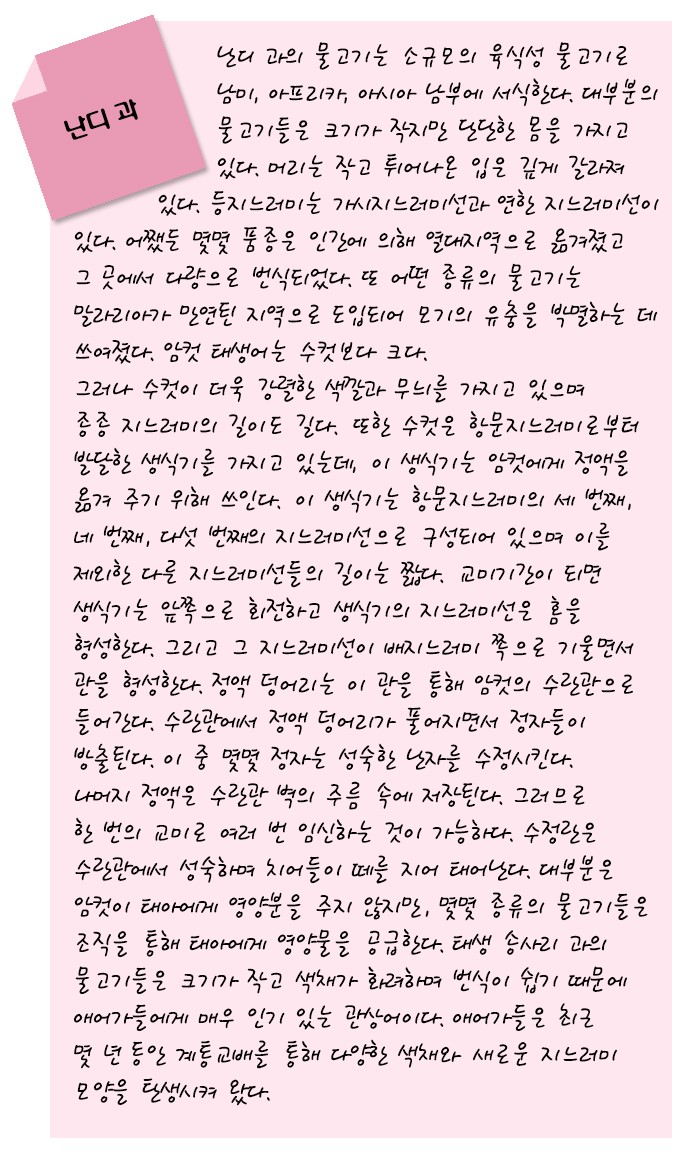 난디 과
난디 과의 물고기는 소규모의 육식성 물고기로
남미, 아프리카, 아시아 남부에 서식한다. 대부분의
물고기들은 크기가 작지만 단단한 몸을 가지고
있다. 머리는 작고 튀어나온 입은 깊게 갈라져
있다. 등지느러미는 가시지느러미선과 연한 지느러미선이
있다. 어쨌든 몇몇 품종은 인간에 의해 열대지역으로 옮겨졌고
그 곳에서 다량으로 번식되었다. 또 어떤 종류의 물고기는
말라리아가 만연된 지역으로 도입되어 모기의 유충을 박멸하는 데
쓰여졌다. 암컷 태생어는 수컷보다 크다.
그러나 수컷이 더욱 강렬한 색깔과 무늬를 가지고 있으며
종종 지느러미의 길이도 길다. 또한 수컷은 항문지느러미로부터
발달한 생식기를 가지고 있는데, 이 생식기는 암컷에게 정액을
옮겨 주기 위해 쓰인다. 이 생식기는 항문지느러미의 세 번째,
네 번째, 다섯 번째의 지느러미선으로 구성되어 있으며 이를
제외한 다른 지느러미선들의 길이는 짧다. 교미기간이 되면
생식기는 앞쪽으로 회전하고 생식기의 지느러미선은 홈을
형성한다. 그리고 그 지느러미선이 배지느러미 쪽으로 기울면서
관을 형성한다. 정액 덩어리는 이 관을 통해 암컷의 수란관으로
들어간다. 수란관에서 정액 덩어리가 풀어지면서 정자들이
방출된다. 이 중 몇몇 정자는 성숙한 난자를 수정시킨다.
나머지 정액은 수란관 벽의 주름 속에 저장된다. 그러므로
한 번의 교미로 여러 번 임신하는 것이 가능하다. 수정란은
수란관에서 성숙하며 치어들이 떼를 지어 태어난다. 대부분은
암컷이 태아에게 영양분을 주지 않지만, 몇몇 종류의 물고기들은
조직을 통해 태아에게 영양물을 공급한다. 태생 송사리 과의
물고기들은 크기가 작고 색채가 화려하며 번식이 쉽기 때문에
애어가들에게 매우 인기 있는 관상어이다. 애어가들은 최근
몇 년 동안 계통교배를 통해 다양한 색채와 새로운 지느러미
모양을 탄생시켜 왔다.